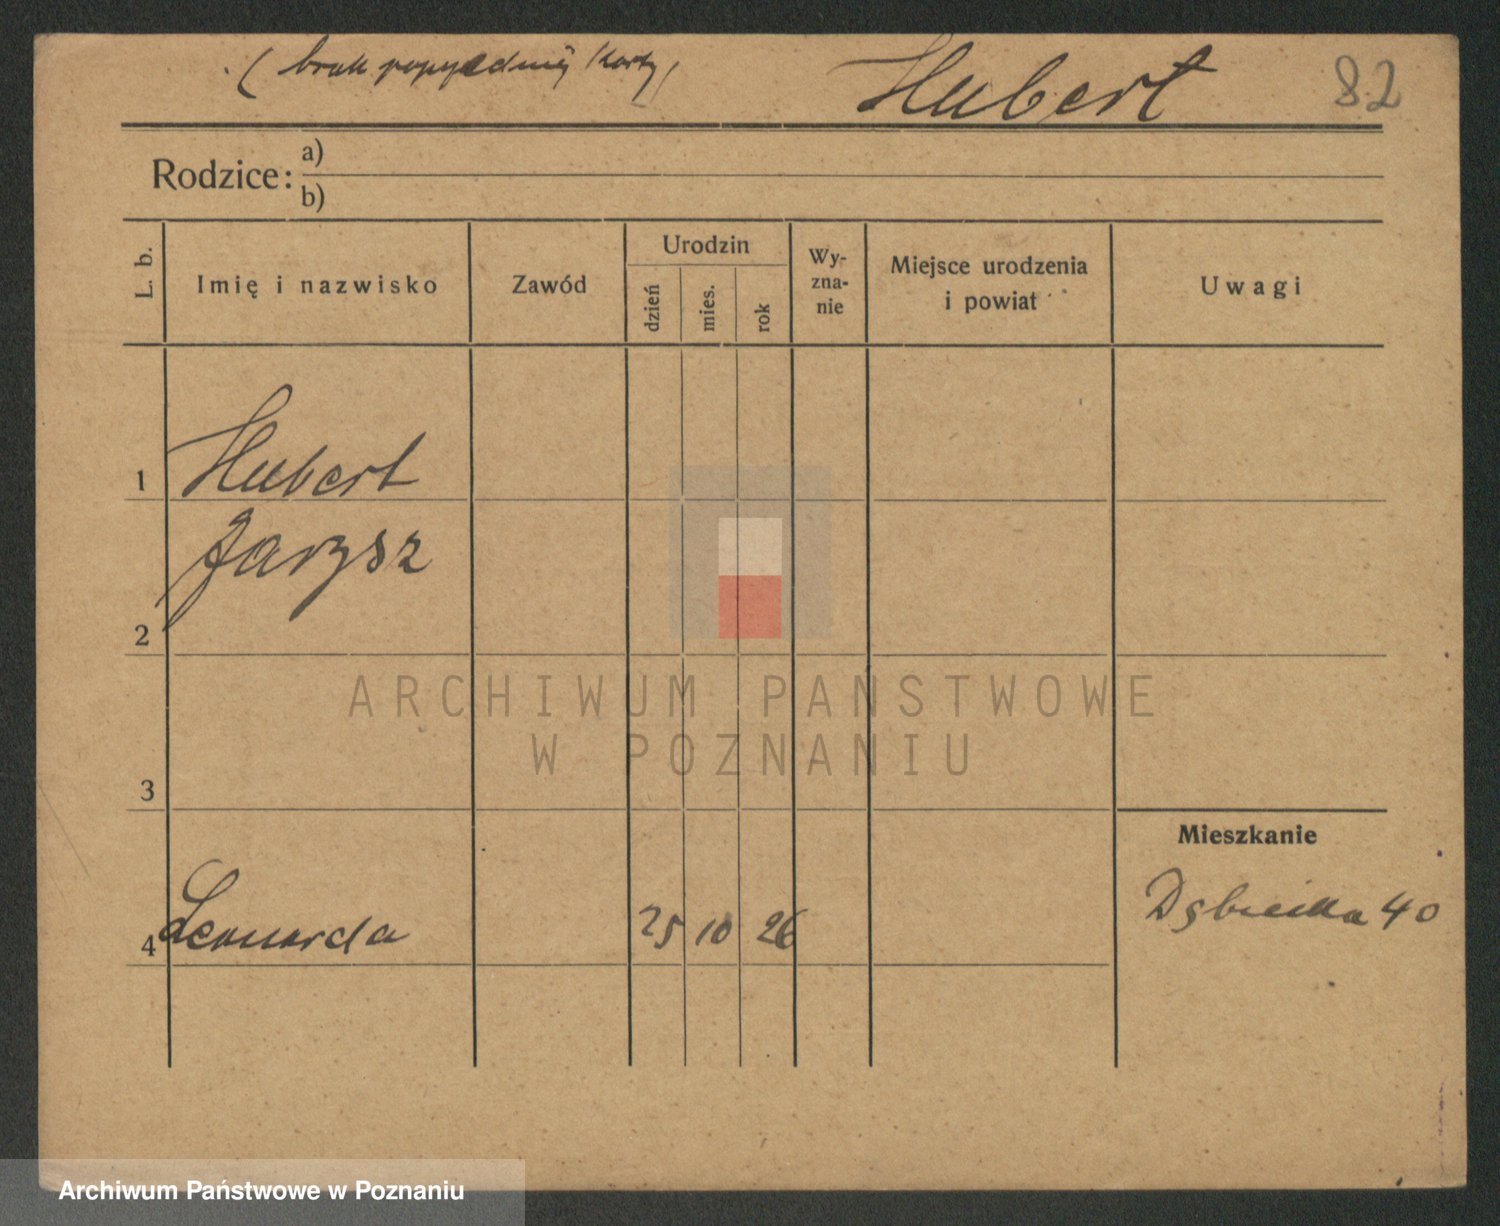 ( brak poprzedniej karty )
Hubert
82
Rodzice:
a)
b)
L. b.
Imię i nazwisko
Zawód
Urodzin
dzień
mies.
rok
Wy-
zna-
nie
Miejsce urodzenia
i powiat
Uwagi
1 Hubert
Jarysz
2
3
4 Leonarda 25 10 26
Mieszkanie
40
ARCHIWUM PAŃSTWOWE
W POZNANIU
Archiwum Państwowe w Poznaniu